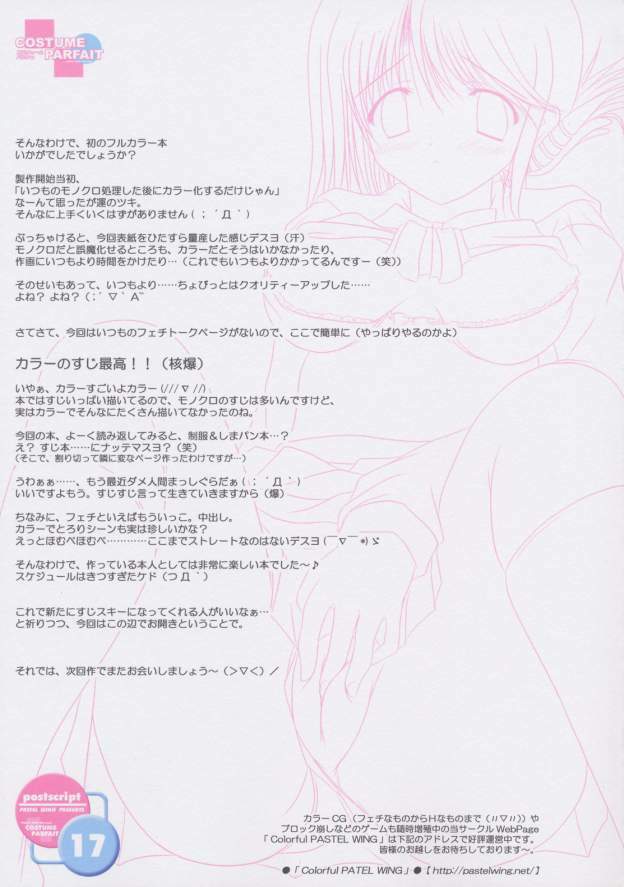 COSTUME
PARFAIT
そんなわけで、初のフルカラー本
いかがでしたでしょうか？
製作開始当初、
「いつものモノクロ処理した後にカラー化するだけじゃん」
なーんて思ったが運のツキ。
そんなに上手くいくはずがありません( ； ´Д｀)
ぶっちゃけると、今回表紙をひたすら量産した感じデスヨ（汗）
モノクロだと誤魔化せるところも、カラーだとそうはいかなかったり、
作画にいつもより時間をかけたり…（これでもいつもよりかかってるんですー（笑））
そのせいもあって、いつもより……ちょびっとはクオリティーアップした……
よね？ よね？（；´ ▽ ` Ａ``
さてさて、今回はいつものフェチトークページがないので、ここで簡単に（やっぱりやるのかよ）
カラーのすじ最高！！（核爆）
いやぁ、カラーすごいよカラー (/// ∇ //)
本ではすじいっぱい描いてるので、モノクロのすじは多いんですけど、
実はカラーでそんなにたくさん描いてなかったのね。
今回の本、よーく読み返してみると、制服＆しまパン本…？
え？ すじ本……にナッテマスヨ？（笑）
（そこで、割り切って隣に変なページ作ったわけですが…）
うわぁぁ……、もう最近ダメ人間まっしぐらだぁ( ； ´Д｀)
いいですよもう。すじすじ言って生きていきますから（爆）
ちなみに、フェチといえばもういっこ。中出し。
カラーでとろりシーンも実は珍しいかな？
えっとほむぺほむぺ…………ここまでストレートなのはないデスヨ (￣▽￣ *)ゞ
そんなわけで、作っている本人としては非常に楽しい本でした～♪
スケジュールはきつすぎたケド（つД｀）
これで新たにすじスキーになってくれる人がいいなぁ…
と祈りつつ、今回はこの辺でお開きということで。
それでは、次回作でまたお会いしましょう～（＞∇＜）／
postscript
PASTEL WING PRESENTS
COSTUME
PARFAIT
17
カラーＣＧ（フェチなものからＨなものまで（〃∇〃））や
ブロック崩しなどのゲームも随時増殖中の当サークル WebPage
「 Colorful PASTEL WING 」は下記のアドレスで好評運営中です。
皆様のお越しをお待ちしております～。
●「 Colorful PATEL WING 」●【 http://pastelwing.net/ 】